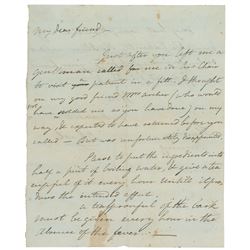 My dear friend,
Just after you left me a
gentleman called for me in
to visit your patient in a fitt. I thought
on my good friend Mrs Archer (who would
not have scolded me as you have done) on my
way, & expected to have returned before you
called — But was unfortunately disappointed.
Please to put the ingredients into
half a pint of boiling water, & give a tea
cupful of it every hour untill it pro-
duces the entended effect.
A teaspoonful of the bark
must be given every hour in the
absence of the fever